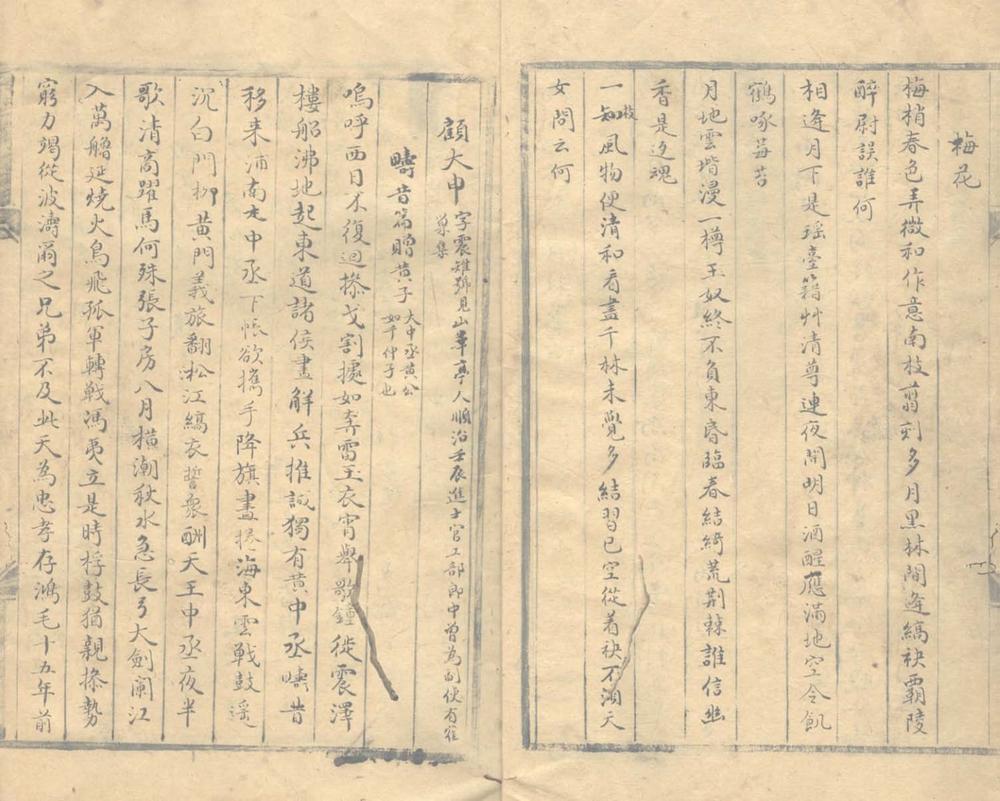 梅花
梅梢春色弄微和作意南枝翦刻多月黑林間逢縞袂霸陵
醉尉誤誰何
相逢月下是瑤臺籍艸清尊連夜開明日酒醒應滿地空令飢
鶴啄莓苔
月地雲堦漫一樽玉奴終不負東昏臨春結綺荒荆棘誰信幽
香是返魂
一枝風物便清和看盡千林未覺多結習已空從着袂不須天
女問云何
顧大申字震雉號見山華亭人順治壬辰進士官工部郎中曾為副使有
集
疇昔篇贈黃子大中丞黃公如千仲子也
嗚呼西日不復迴搽戈割據如奔雷玉衣宵舉歌鍾徙震澤
樓船沸地起東道諸侯盡解兵推誠獨有黃中丞疇昔
移来浦南走中丞下帳欲攜手降旗晝捲海東雲戰鼓遥
沉白門柳黃門義旅翻淞江縞衣誓衆酬天王中丞夜半
歌清商躍馬何殊張子房八月橫潮秋水急長弓大劍闌江
入萬艪延燒火鳥飛孤軍轉戰馮夷立是時桴鼓猶親搽勢
窮力竭從波濤溺之兄弟不及此天為忠孝存鴻毛十五年前